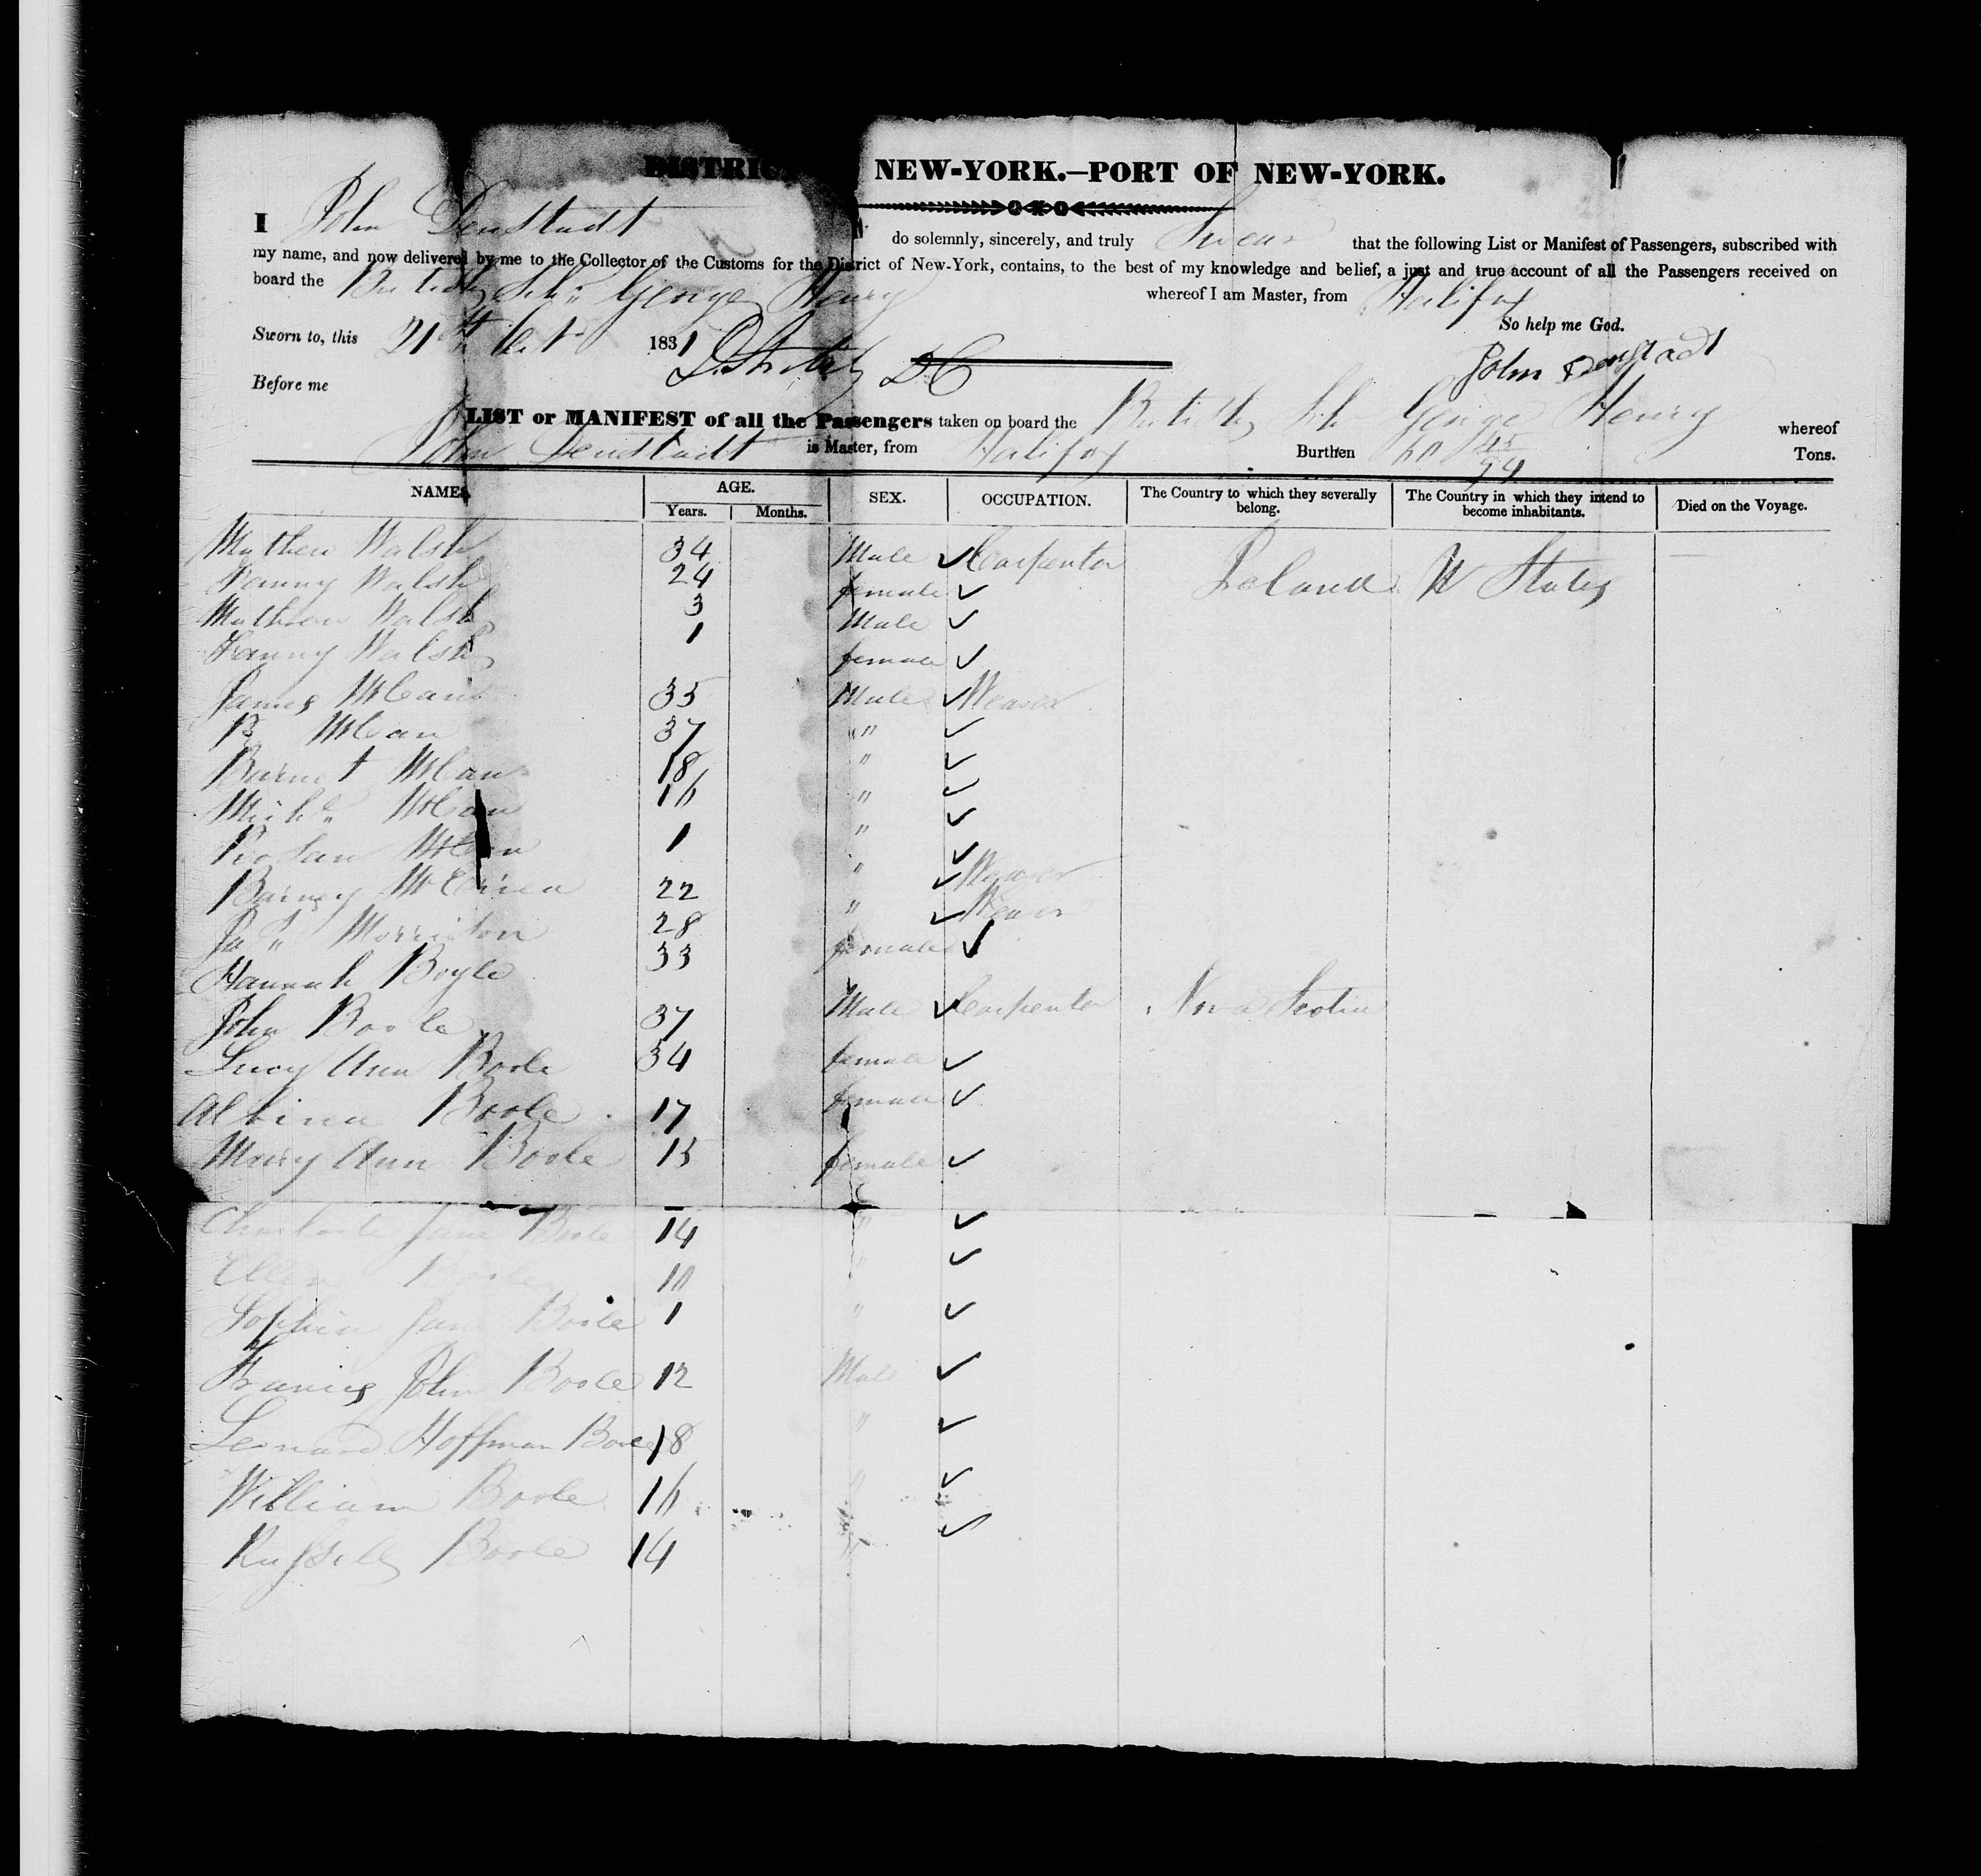 DISTRIC NEW-YORK.–PORT OF NEW-YORK.
I John Denstadt do solemnly, sincerely, and truly Swear that the following List or Manifest of Passengers, subscribed with
my name, and now delivered by me to the Collector of the Customs for the District of New-York, contains, to the best of my knowledge and belief, a just and true account of all the Passengers received on
board the British Schr George Henry whereof I am Master, from Halifax
So help me God.
Sworn to, this 21st Oct 1831
John Denstadt
Before me
LIST or MANIFEST of all the Passengers taken on board the British Sch George Henry whereof
John Denstadt is Master, from Halifax Burthen 60 45/94 Tons.
NAMES. AGE. SEX. OCCUPATION. The Country to which they severally belong. The Country in which they intend to become inhabitants. Died on the Voyage.
Years. Months.
Mathew Walsh 34 Male ✓ Carpenter Ireland U States
Fanny Walsh 24 female ✓
Mathew Walsh 3 Male ✓
Fanny Walsh 1 female ✓
James McCann 35 Male ✓ Weaver
B McCan 37 " ✓
Barnet McCan 18 " ✓
Michl McCan 16 " ✓
Rosan McCan 1 " ✓
Barney 22 " ✓ Weaver
Jas Morrison 28 " ✓ Weaver
Hannah Boyle 33 female ✓
John Boole 37 Male ✓ Carpenter Nova Scotia
Lucy Ann Boole 34 female ✓
Albina Boole 17 female ✓
Mary Ann Boole 15 female ✓
Charlotte Jane Boole 14 " ✓
Ellen Boole 10 " ✓
Sophia Jane Boole 1 " ✓
Francis John Boole 12 Male ✓
Leonard Hoffman Boole 18 " ✓
William Boole 16 " ✓
Boole 14 " ✓